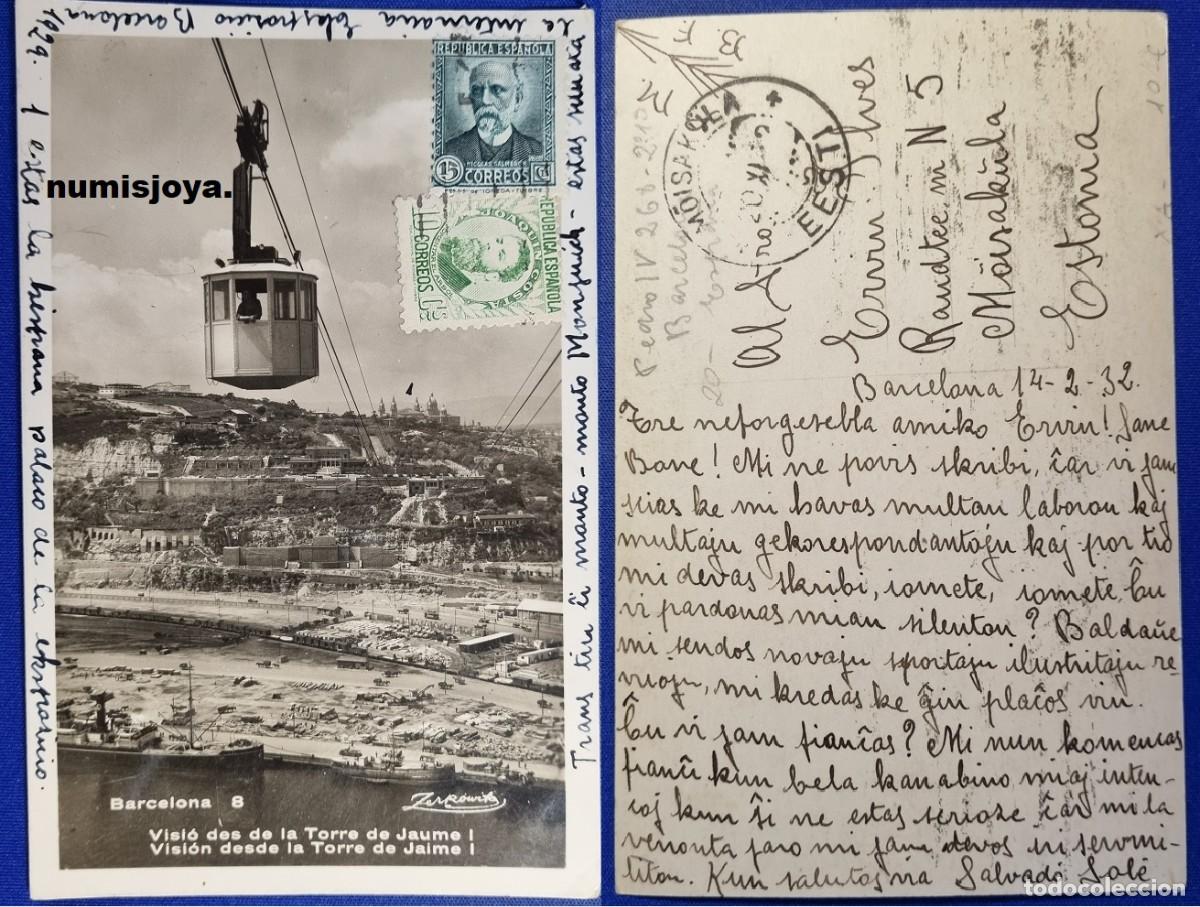 la internacia Ekspozicio Barcelona
1929. 1 estas la hispana palaco de la ekspozicio.
Trans tiu ĉi monto - monto Monjuich - estas remara
REPUBLICA ESPAÑOLA
NICOLAS SALMERON
15 CORREOS Cs
REPUBLICA ESPAÑOLA
JOAQUIN COSTA
10 CORREOS Cs
numisjoya.
Barcelona 8
Zerkowitz
Visió des de la Torre de Jaume I
Visión desde la Torre de Jaime I
MÕISAKÜLA
EESTI
Al S-ro
Ervin Ilves
Raudtee m N 5
Mõisaküla
Estonia
Barcelona 14-2-32.
Tre neforgesebla amiko Ervin! Sane
Bone! Mi ne povis skribi, ĉar vi jam
scias ke mi havas multan laboron kaj
multajn gekorespondantojn kaj por tio
mi devas skribi, iomete, iomete. Ĉu
vi pardonas mian silenton? Baldaŭe
mi sendos novajn sportajn ilustritajn re-
vuojn, mi kredas ke ĝin plaĉos vin.
Ĉu vi jam fianĉas? Mi nun komencas
fianĉi kun bela kanabino miaj inten-
coj kun ŝi ne estas serioze ĉar mi la
venonta jaro mi jam devos iri servmi-
liton. Kun salutos via Salvadó Solé
todocoleccion